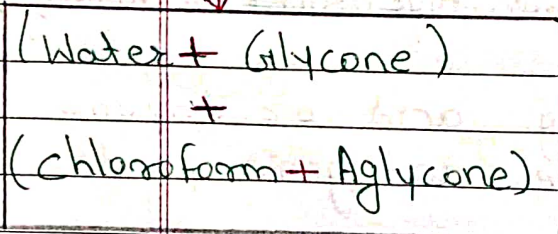 (Water + Glycone)
+
(chloroform + Aglycone)